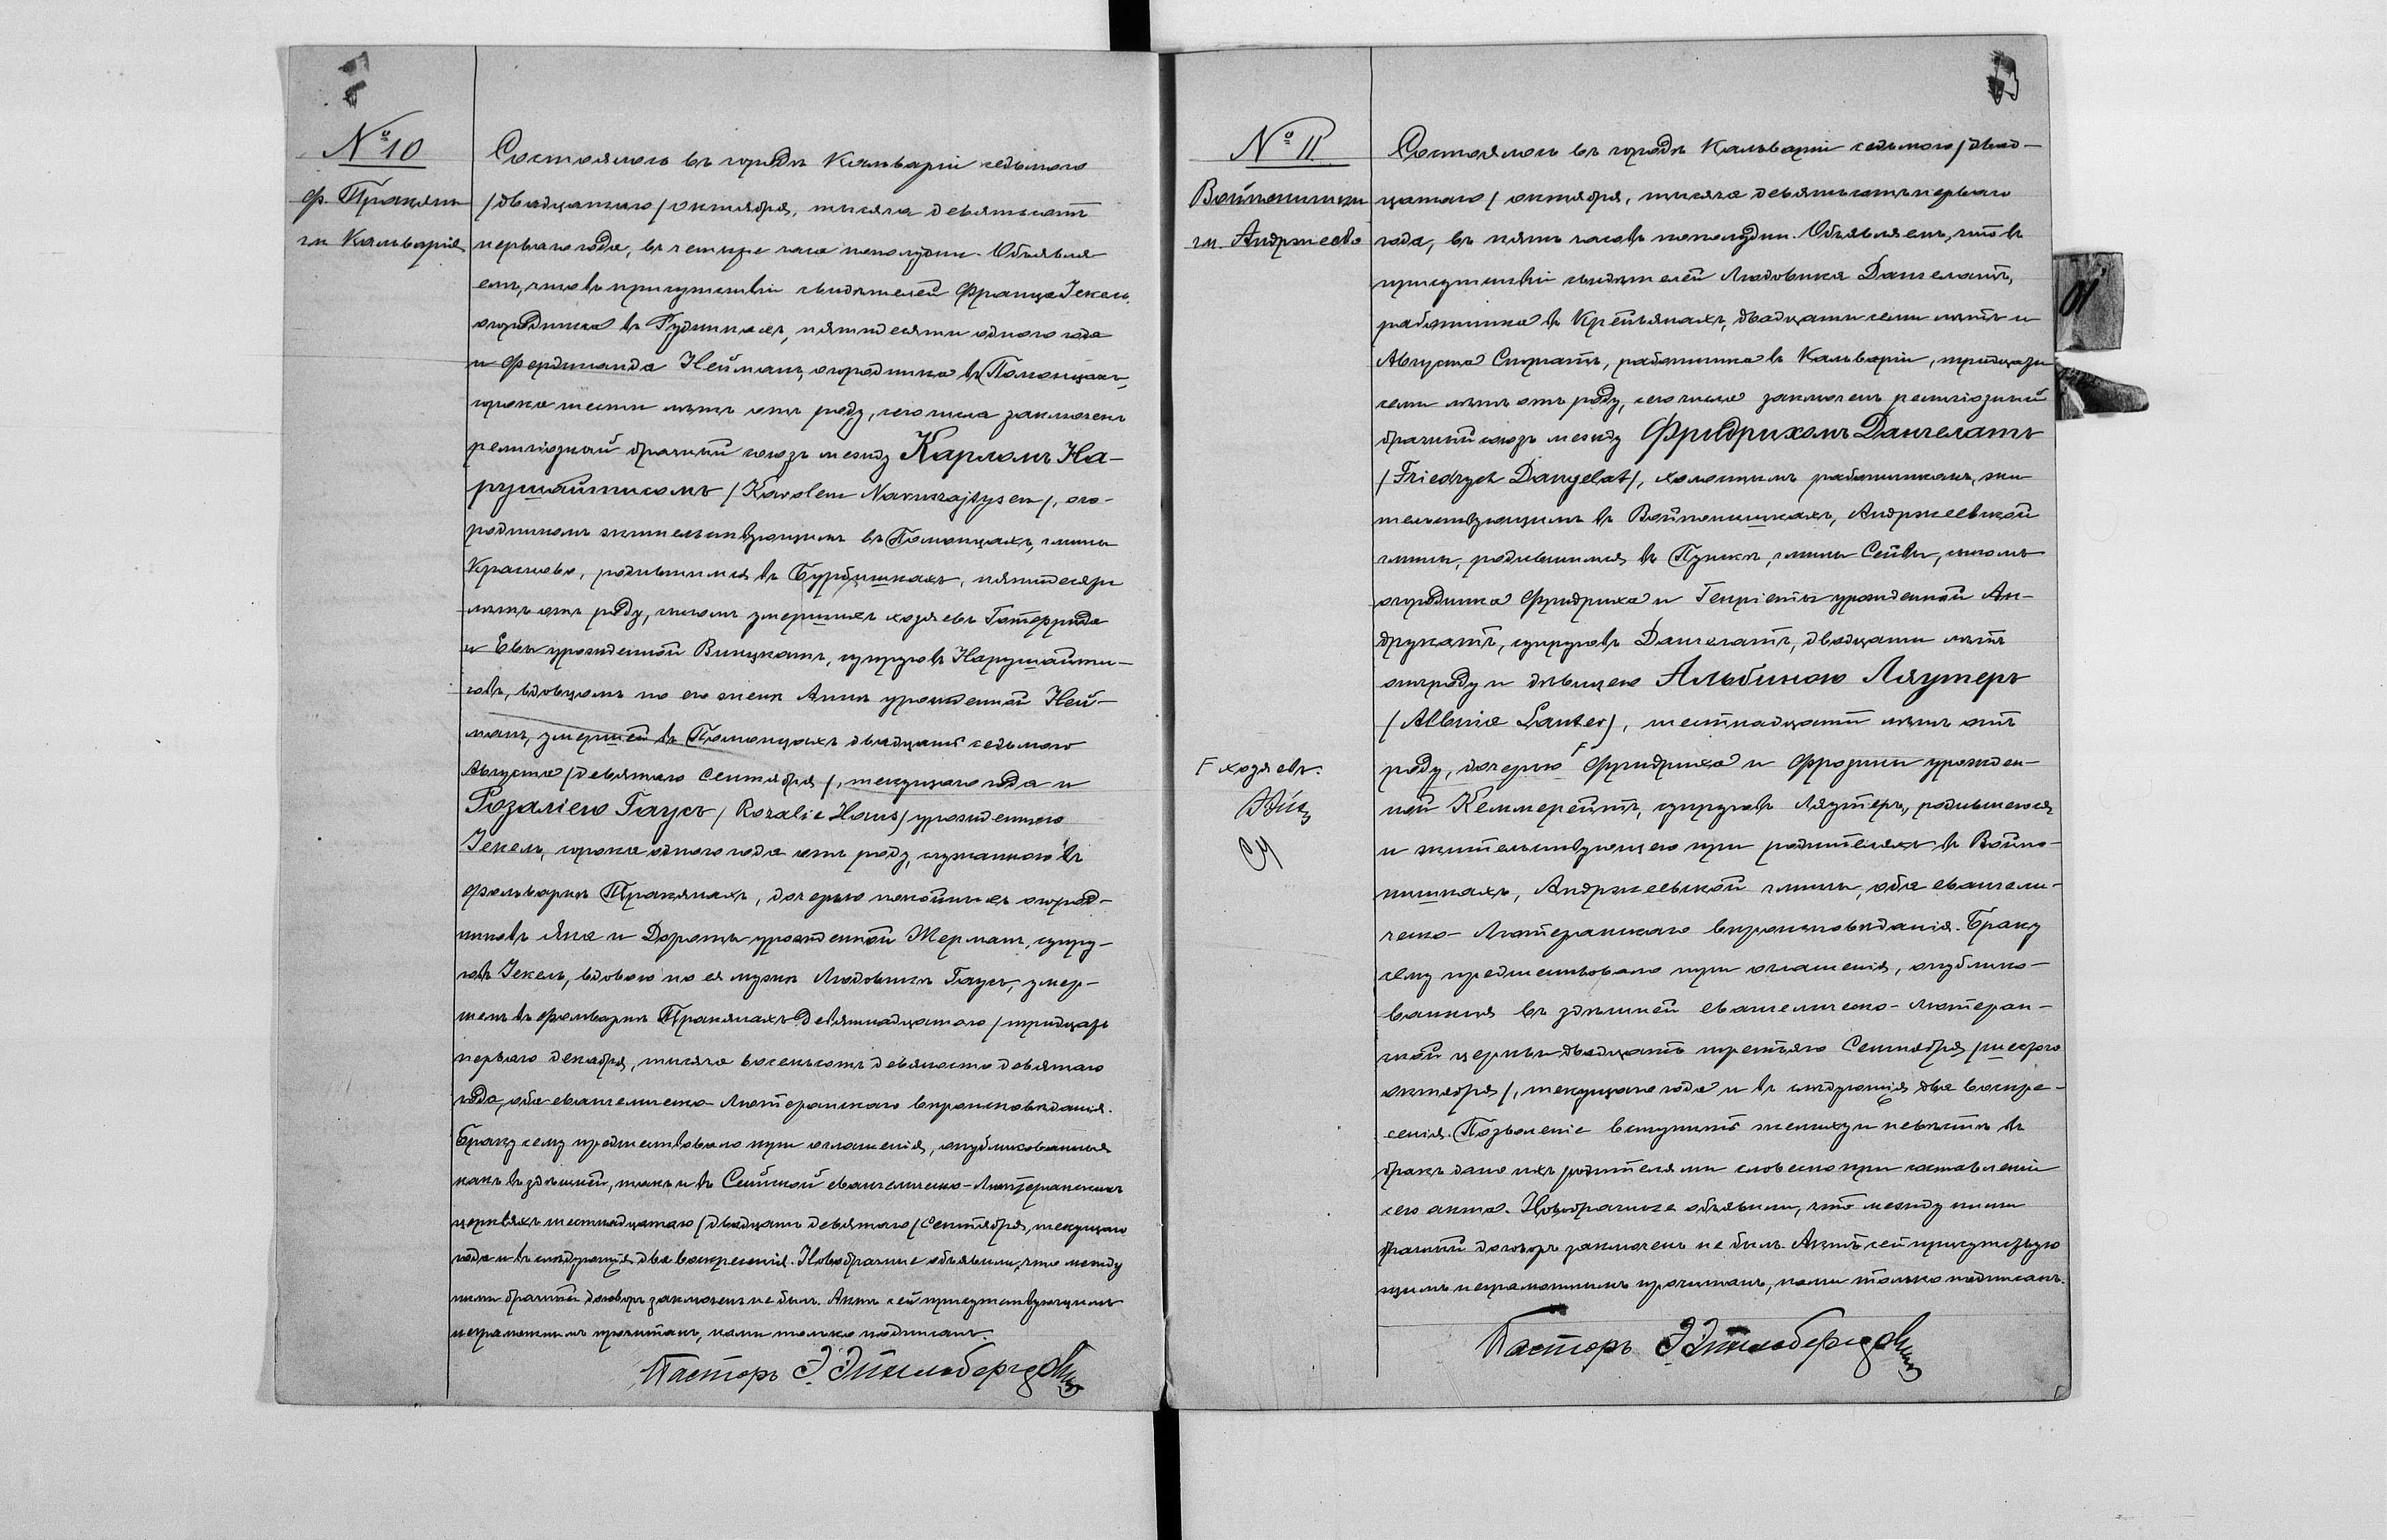 № 10
ф. Тракяны
гм. Кальвария
Состоялось въ городѣ Кальваріи седьмого
/двадцатаго/ октября, тысяча девятьсотъ
перваго года, въ четыре часа пополудни. Объявля
емъ, что въ присутствіи свидѣтелей Франца Іекель,
огородника въ Рудникахъ, пятидесяти одного года
и Фердинанда Нейманъ, огородника въ Помонцахъ,
сорока шести лѣтъ отъ роду, сего числа заключенъ
религіозный брачный союзъ между Карломъ На-
рушайтисомъ /Karolem Naruszajtysem/, ого-
родникомъ жительствующимъ въ Помонцахъ, гмины
Красново, родившимся въ Бурбишкахъ, пятидесяти
лѣтъ отъ роду, сыномъ умершихъ хозяевъ Готфрида
и Евы урожденной Виицкатъ, супруговъ Нарушайти-
совъ, вдовцомъ по его женѣ Аннѣ урожденной Ней-
манъ, умершей въ Помонцахъ двадцать седьмого
Августа /девятаго Сентября/, текущаго года и
Розаліею Гаусъ /Rozalie Haus/ урожденною
Іекель, сорока одного года отъ роду, служанкою въ
фольваркѣ Тракянахъ, дочерью покойныхъ огород-
никовъ Яна и Дороты урожденной Жерманъ, супру-
говъ Іекель, вдовою по ея мужѣ Людовикѣ Гаусъ, умер-
шемъ въ фольваркѣ Тракянахъ девятнадцатаго /тридцать
перваго декабря, тысяча восемьсотъ девяносто девятаго
года, оба евангелическо-Лютеранскаго вѣроисповѣданія.
Браку сему предшествовало три оглашенія, опубликованныя
какъ въ здѣшней, такъ и въ Сейнской евангелическо-Лютеранскихъ
церквахъ шестнадцатаго /двадцать девятаго/ Сентября, текущаго
года и въ слѣдующія два воскресенія. Новобрачные объявили, что между
ними брачный договоръ заключенъ не былъ. Актъ сей присутствующимъ
неграмотнымъ прочитанъ, нами только подписанъ.
Пасторъ
№ 11
Войпонишки
гм. Андржеево
Состоялось въ городѣ Кальваріи седьмого /двад-
цатаго/ октября, тысяча девятьсотъ перваго
года, въ пять часовъ пополудни. Объявляемъ, что въ
присутствіи свидѣтелей Людовика Дангелатъ,
работника въ Крейвянахъ, двадцати семи лѣтъ и
Августа Споратъ, работника въ Кальваріи, тридцати
семи лѣтъ отъ роду, сего числа заключенъ религіозный
брачный союзъ между Фридрихомъ Дангелатъ
/Friedrych Dangelat/, холостымъ работникомъ, жи
тельствующимъ въ Войпонишкахъ, Андржеевской
гмины, родившимся въ Пунскѣ, гмины Сейвы, сыномъ
огородника Фридриха и Генріеты урожденной Ан-
друкатъ, супруговъ Дангелатъ, двадцати лѣтъ
отъ роду и дѣвицею Альбиною Ляутеръ
/Albine Lauter/, шестнадцати лѣтъ отъ
роду, дочерью F Фридриха и Фрозины урожден-
ной Кеммерейтъ, супруговъ Ляутеръ, родившеюся
и жительствующею при родителяхъ въ Войпо-
нишкахъ, Андржеевской гмины, оба евангели-
ческо-Лютеранскаго вѣроисповѣданія. Браку
сему предшествовало три оглашенія, опублико-
ванныя въ здѣшней евангелическо-Лютеран-
ской церкви двадцать третьяго Сентября /шестого
октября/, текущаго года и въ слѣдующія два воскре-
сенія. Позволеніе вступить жениху и невѣстѣ въ
бракъ дано ихъ родителями словесно при составленіи
сего акта. Новобрачные объявили, что между ними
брачный договоръ заключенъ не былъ. Актъ сей присутствую
щимъ неграмотнымъ прочитанъ, нами только подписанъ.
Пасторъ
F хозяевъ.
10